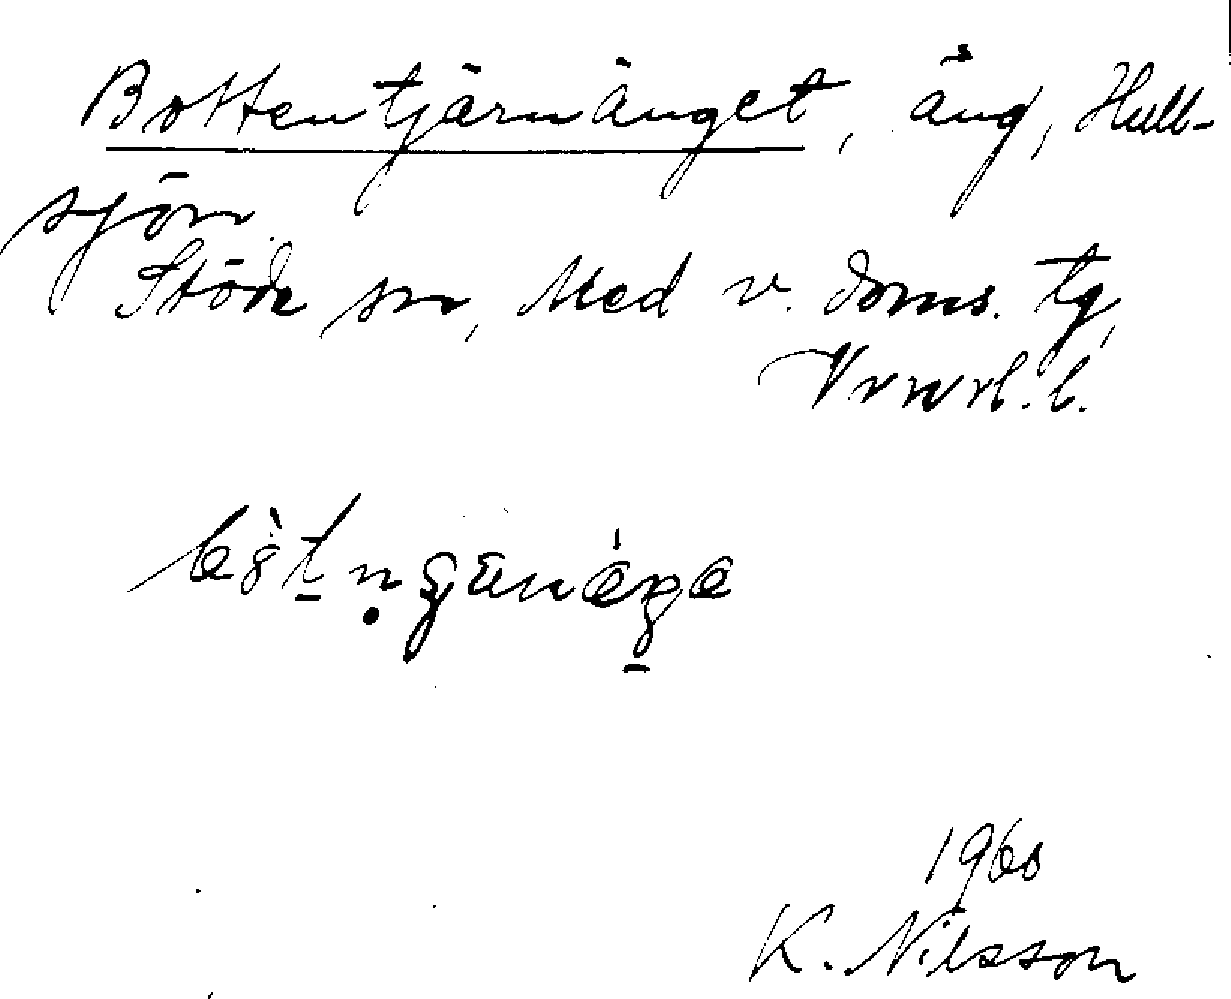 Bottentjärnänget, äng, Hull-
sjön
Stöde sn, Med v. doms. tg,
Vnrl. l.
1960
K. Nilsson